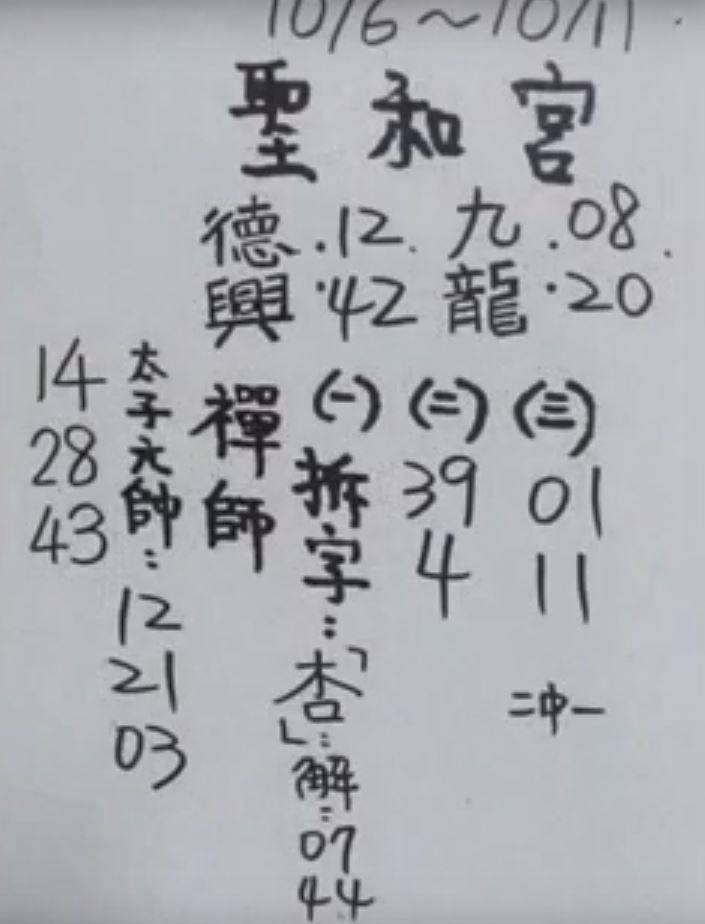 10/6～10/11
聖和宮
德興 .12. .42
九龍 .08. .20
(一) 拆字：「杏」：解：07 44
(二) 39 4
(三) 01 11
二中一
禪師
太子元帥：12 21 03
14 28 43